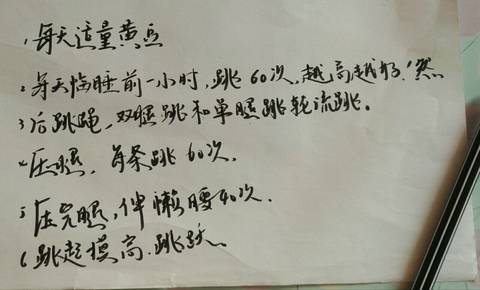 1,每天适量黄豆
2、每天临睡前一小时,跳60次,越高越好,然
3后跳绳,双腿跳和单腿跳轮流跳。
4压腿,每条跳60次.
5压完腿,伸懒腰40次.
6跳起摸高.跳跃.